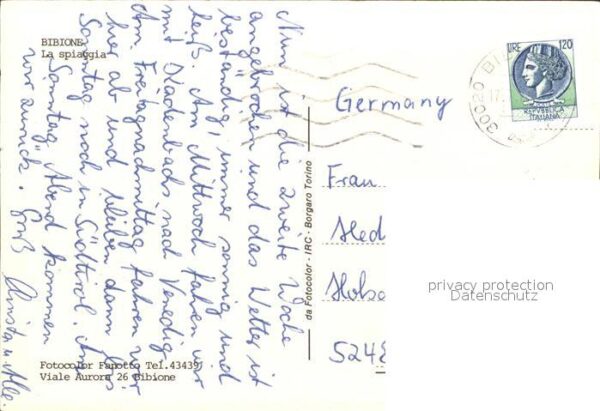 BIBIONE
La spiaggia
Nun ist die zweite Woche
angebrochen und das Wetter ist
beständig, immer sonnig und
heiß. Am Mittwoch fahren wir
mit Diedenbachs nach Venedig
Am Freitagnachmittag fahren wir
hier ab und bleiben dann bis
Sonntag noch in Südtirol. Am
Sonntag Abend kommen
wir zurück. Gruß
u. Alle.
Fotocolor Fanotto Tel.43439
Viale Aurora 26 Bibione
da Fotocolor - IRC - Borgaro Torino
LIRE 120
REPVBBLICA
ITALIANA
30020 BI
Germany
Frau
Hed
Holso
5248
privacy protection
Datenschutz